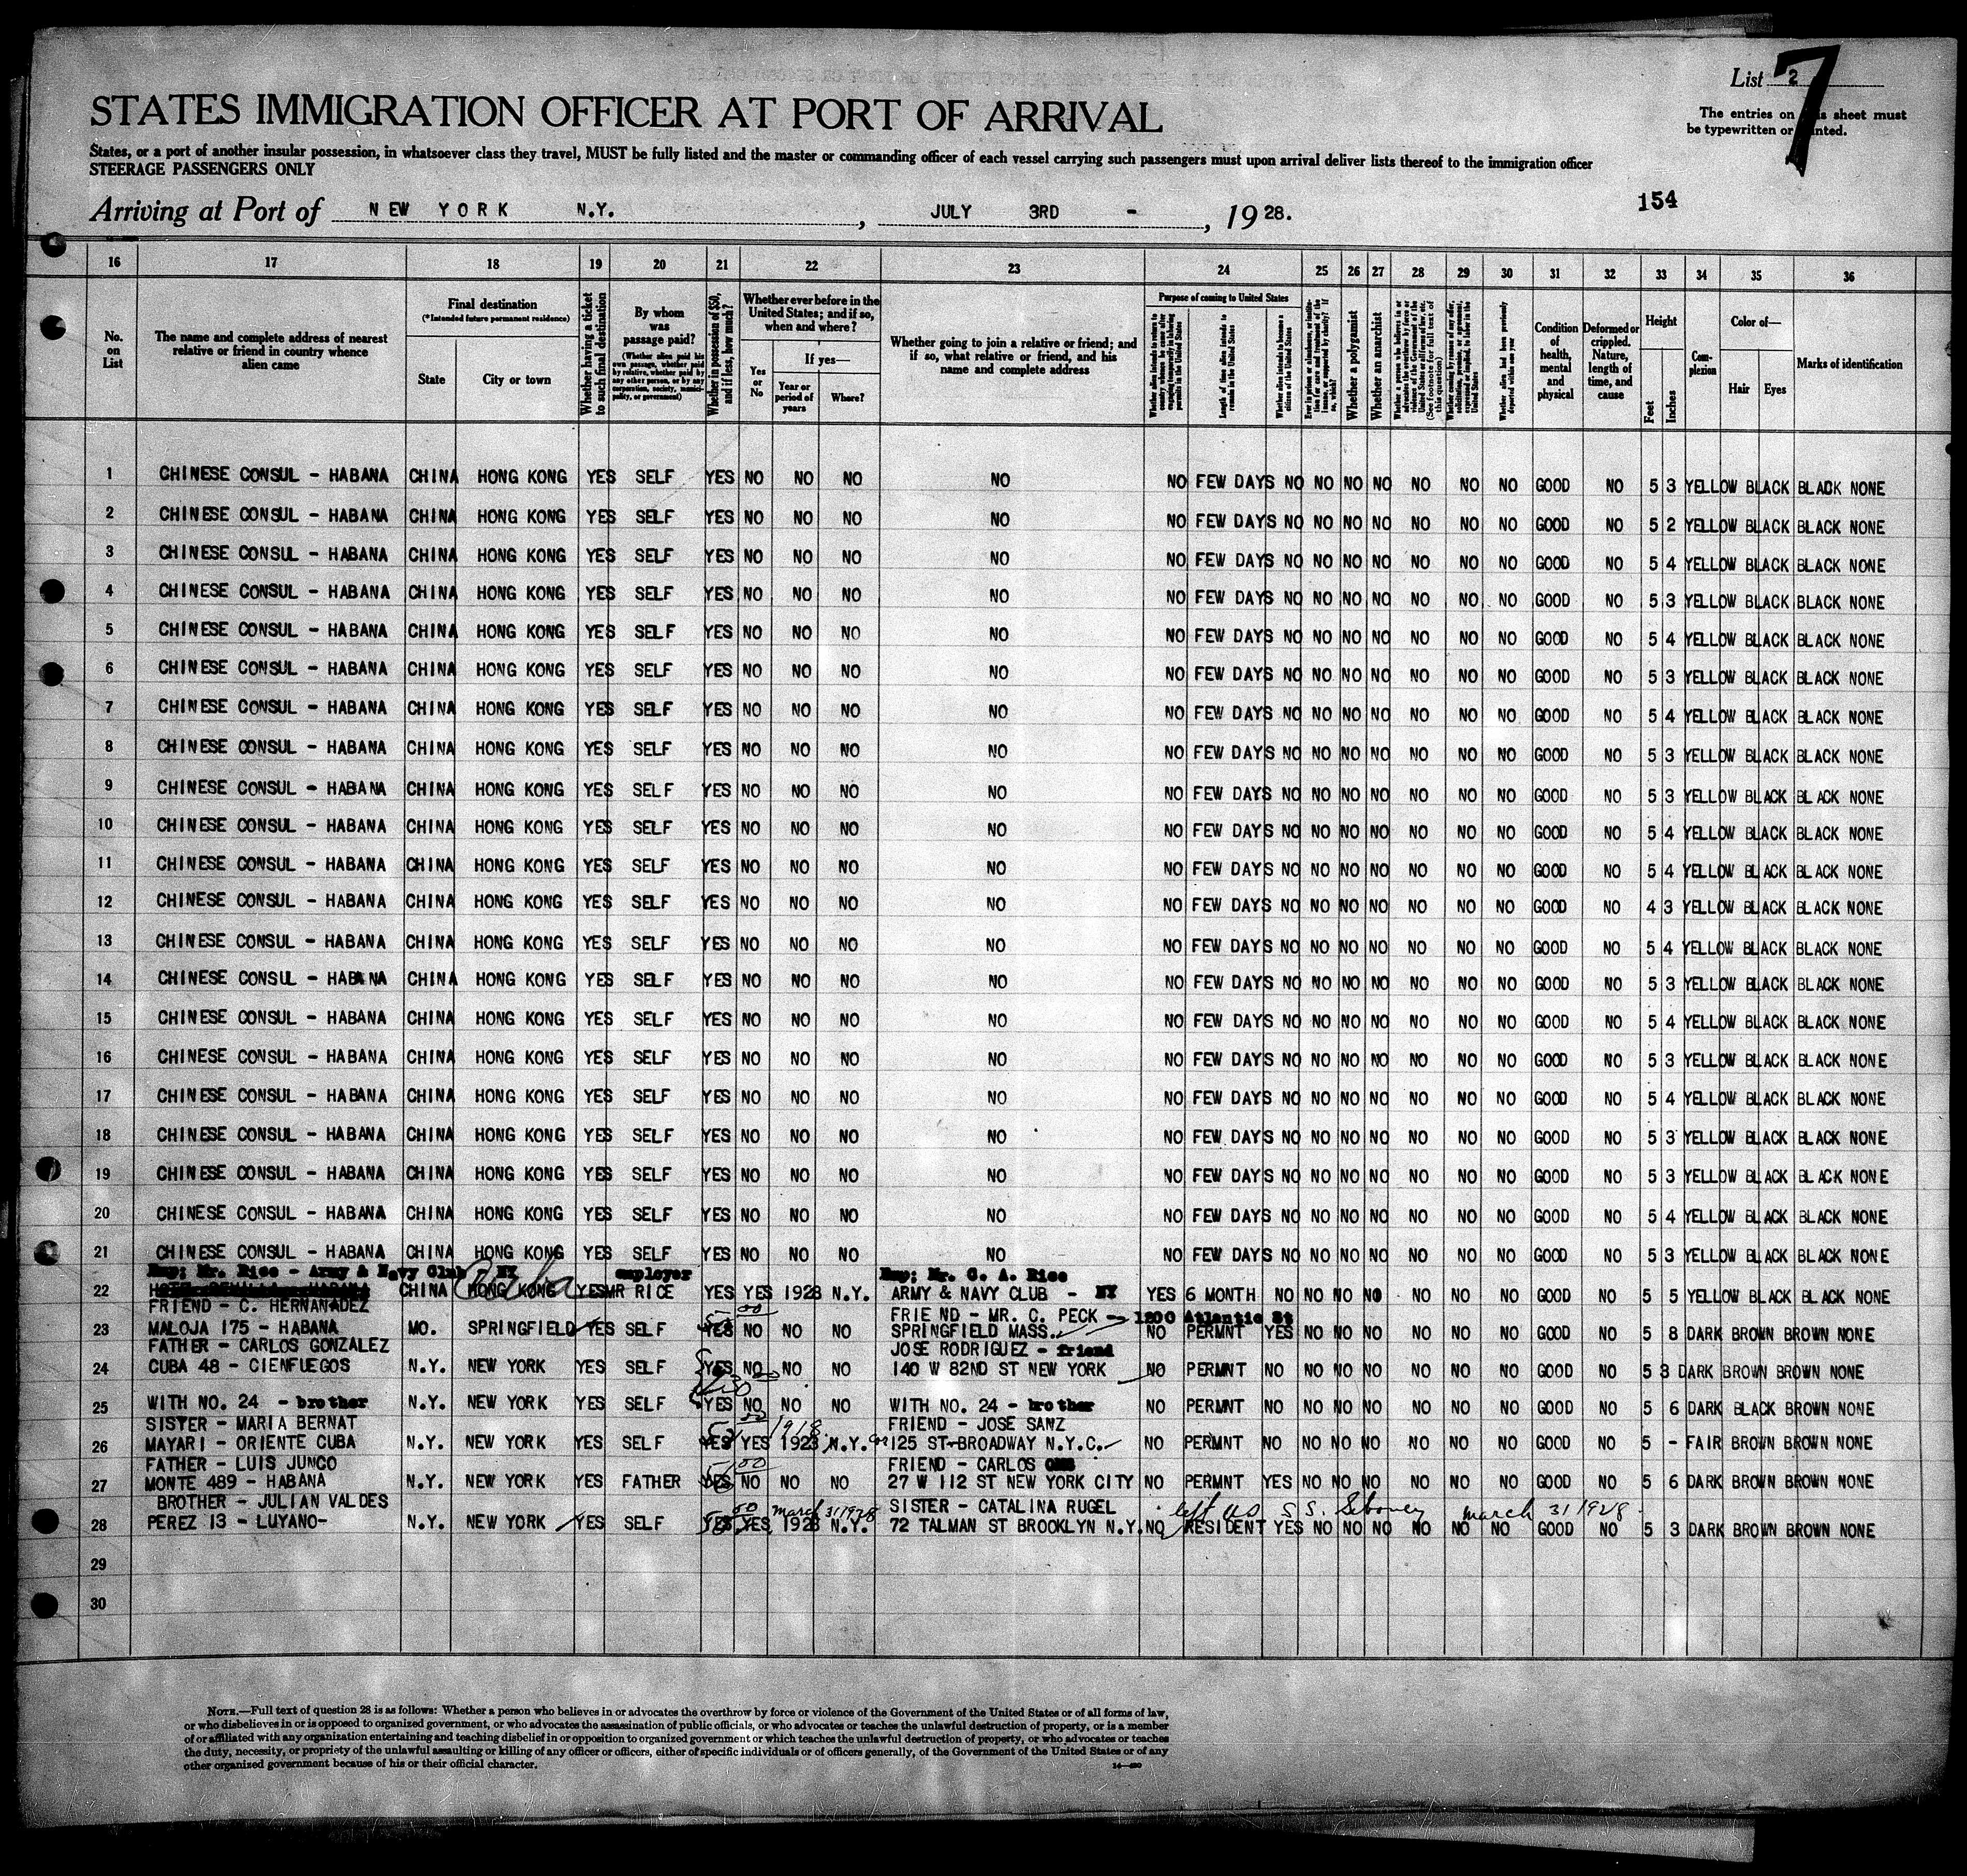 List 2
7
The entries on this sheet must
be typewritten or printed.
STATES IMMIGRATION OFFICER AT PORT OF ARRIVAL
States, or a port of another insular possession, in whatsoever class they travel, MUST be fully listed and the master or commanding officer of each vessel carrying such passengers must upon arrival deliver lists thereof to the immigration officer
STEERAGE PASSENGERS ONLY
154
Arriving at Port of NEW YORK N.Y. , JULY 3RD - , 19 28.
16 17 18 19 20 21 22 23 24 25 26 27 28 29 30 31 32 33 34 35 36
No. on List
The name and complete address of nearest relative or friend in country whence alien came
Final destination
(*Intended future permanent residence)
State
City or town
Whether having a ticket to such final destination
By whom was passage paid?
(Whether alien paid his own passage, whether paid by relative, whether paid by any other person, or by any corporation, society, municipality, or government)
Whether in possession of $50, and if less, how much?
Whether ever before in the United States; and if so, when and where?
Yes or No
If yes—
Year or period of years
Where?
Whether going to join a relative or friend; and if so, what relative or friend, and his name and complete address
Purpose of coming to United States
Whether alien intends to return to country whence he came after engaging temporarily in laboring pursuits in the United States
Length of time alien intends to remain in the United States
Whether alien intends to become a citizen of the United States
Ever in prison or almshouse, or institution for care and treatment of the insane, or supported by charity? If so, which?
Whether a polygamist
Whether an anarchist
Whether a person who believes in or advocates the overthrow by force or violence of the Government of the United States or all forms of law, etc. (See footnote for full text of this question)
Whether coming by reason of any offer, solicitation, promise, or agreement, expressed or implied, to labor in the United States
Whether alien had been previously deported within one year
Condition of health, mental and physical
Deformed or crippled. Nature, length of time, and cause
Height
Feet
Inches
Complexion
Color of—
Hair
Eyes
Marks of identification
1 CHINESE CONSUL - HABANA CHINA HONG KONG YES SELF YES NO NO NO NO NO FEW DAYS NO NO NO NO NO NO NO GOOD NO 5 3 YELLOW BLACK BLACK NONE
2 CHINESE CONSUL - HABANA CHINA HONG KONG YES SELF YES NO NO NO NO NO FEW DAYS NO NO NO NO NO NO NO GOOD NO 5 2 YELLOW BLACK BLACK NONE
3 CHINESE CONSUL - HABANA CHINA HONG KONG YES SELF YES NO NO NO NO NO FEW DAYS NO NO NO NO NO NO NO GOOD NO 5 4 YELLOW BLACK BLACK NONE
4 CHINESE CONSUL - HABANA CHINA HONG KONG YES SELF YES NO NO NO NO NO FEW DAYS NO NO NO NO NO NO NO GOOD NO 5 3 YELLOW BLACK BLACK NONE
5 CHINESE CONSUL - HABANA CHINA HONG KONG YES SELF YES NO NO NO NO NO FEW DAYS NO NO NO NO NO NO NO GOOD NO 5 4 YELLOW BLACK BLACK NONE
6 CHINESE CONSUL - HABANA CHINA HONG KONG YES SELF YES NO NO NO NO NO FEW DAYS NO NO NO NO NO NO NO GOOD NO 5 3 YELLOW BLACK BLACK NONE
7 CHINESE CONSUL - HABANA CHINA HONG KONG YES SELF YES NO NO NO NO NO FEW DAYS NO NO NO NO NO NO NO GOOD NO 5 4 YELLOW BLACK BLACK NONE
8 CHINESE CONSUL - HABANA CHINA HONG KONG YES SELF YES NO NO NO NO NO FEW DAYS NO NO NO NO NO NO NO GOOD NO 5 3 YELLOW BLACK BLACK NONE
9 CHINESE CONSUL - HABANA CHINA HONG KONG YES SELF YES NO NO NO NO NO FEW DAYS NO NO NO NO NO NO NO GOOD NO 5 3 YELLOW BLACK BLACK NONE
10 CHINESE CONSUL - HABANA CHINA HONG KONG YES SELF YES NO NO NO NO NO FEW DAYS NO NO NO NO NO NO NO GOOD NO 5 4 YELLOW BLACK BLACK NONE
11 CHINESE CONSUL - HABANA CHINA HONG KONG YES SELF YES NO NO NO NO NO FEW DAYS NO NO NO NO NO NO NO GOOD NO 5 4 YELLOW BLACK BLACK NONE
12 CHINESE CONSUL - HABANA CHINA HONG KONG YES SELF YES NO NO NO NO NO FEW DAYS NO NO NO NO NO NO NO GOOD NO 4 3 YELLOW BLACK BLACK NONE
13 CHINESE CONSUL - HABANA CHINA HONG KONG YES SELF YES NO NO NO NO NO FEW DAYS NO NO NO NO NO NO NO GOOD NO 5 4 YELLOW BLACK BLACK NONE
14 CHINESE CONSUL - HABANA CHINA HONG KONG YES SELF YES NO NO NO NO NO FEW DAYS NO NO NO NO NO NO NO GOOD NO 5 3 YELLOW BLACK BLACK NONE
15 CHINESE CONSUL - HABANA CHINA HONG KONG YES SELF YES NO NO NO NO NO FEW DAYS NO NO NO NO NO NO NO GOOD NO 5 4 YELLOW BLACK BLACK NONE
16 CHINESE CONSUL - HABANA CHINA HONG KONG YES SELF YES NO NO NO NO NO FEW DAYS NO NO NO NO NO NO NO GOOD NO 5 3 YELLOW BLACK BLACK NONE
17 CHINESE CONSUL - HABANA CHINA HONG KONG YES SELF YES NO NO NO NO NO FEW DAYS NO NO NO NO NO NO NO GOOD NO 5 4 YELLOW BLACK BLACK NONE
18 CHINESE CONSUL - HABANA CHINA HONG KONG YES SELF YES NO NO NO NO NO FEW DAYS NO NO NO NO NO NO NO GOOD NO 5 3 YELLOW BLACK BLACK NONE
19 CHINESE CONSUL - HABANA CHINA HONG KONG YES SELF YES NO NO NO NO NO FEW DAYS NO NO NO NO NO NO NO GOOD NO 5 3 YELLOW BLACK BLACK NONE
20 CHINESE CONSUL - HABANA CHINA HONG KONG YES SELF YES NO NO NO NO NO FEW DAYS NO NO NO NO NO NO NO GOOD NO 5 4 YELLOW BLACK BLACK NONE
21 CHINESE CONSUL - HABANA CHINA HONG KONG YES SELF YES NO NO NO NO NO FEW DAYS NO NO NO NO NO NO NO GOOD NO 5 3 YELLOW BLACK BLACK NONE
Emp; Mr. Rice - Army & Navy Club - NY employer Emp; Mr. C. A. Rice
22 CHINA HONG KONG Cuba YES MR RICE YES YES 1928 N.Y. ARMY & NAVY CLUB - NY YES 6 MONTH NO NO NO NO NO NO NO GOOD NO 5 5 YELLOW BLACK BLACK NONE
FRIEND - C. HERNANADEZ FRIEND - MR. C. PECK - 1200 Atlantic St
23 MALOJA 175 - HABANA MO. SPRINGFIELD YES SELF YES NO NO NO SPRINGFIELD MASS. NO PERMNT YES NO NO NO NO NO NO GOOD NO 5 8 DARK BROWN BROWN NONE
FATHER - CARLOS GONZALEZ JOSE RODRIGUEZ - friend
24 CUBA 48 - CIENFUEGOS N.Y. NEW YORK YES SELF YES NO NO NO 140 W 82ND ST NEW YORK NO PERMNT NO NO NO NO NO NO NO GOOD NO 5 3 DARK BROWN BROWN NONE
25 WITH NO. 24 - brother N.Y. NEW YORK YES SELF YES NO NO NO WITH NO. 24 - brother NO PERMNT NO NO NO NO NO NO NO GOOD NO 5 6 DARK BLACK BROWN NONE
SISTER - MARIA BERNAT 1918 FRIEND - JOSE SANZ
26 MAYARI - ORIENTE CUBA N.Y. NEW YORK YES SELF YES YES 1923 N.Y. 125 ST-BROADWAY N.Y.C. NO PERMNT NO NO NO NO NO NO NO GOOD NO 5 - FAIR BROWN BROWN NONE
FATHER - LUIS JUNCO FRIEND - CARLOS
27 MONTE 489 - HABANA N.Y. NEW YORK YES FATHER YES NO NO NO 27 W 112 ST NEW YORK CITY NO PERMNT YES NO NO NO NO NO NO GOOD NO 5 6 DARK BROWN BROWN NONE
BROTHER - JULIAN VALDES march 31 1928 SISTER - CATALINA RUGEL left US S.S. Siboney march 31 1928
28 PEREZ 13 - LUYANO- N.Y. NEW YORK YES SELF YES YES 1928 N.Y. 72 TALMAN ST BROOKLYN N.Y. NO RESIDENT YES NO NO NO NO NO NO GOOD NO 5 3 DARK BROWN BROWN NONE
29
30
NOTE.—Full text of question 28 is as follows: Whether a person who believes in or advocates the overthrow by force or violence of the Government of the United States or of all forms of law,
or who disbelieves in or is opposed to organized government, or who advocates the assassination of public officials, or who advocates or teaches the unlawful destruction of property, or is a member
of or affiliated with any organization entertaining and teaching disbelief in or opposition to organized government or which teaches the unlawful destruction of property, or who advocates or teaches
the duty, necessity, or propriety of the unlawful assaulting or killing of any officer or officers, either of specific individuals or of officers generally, of the Government of the United States or of any
other organized government because of his or their official character.
14—480